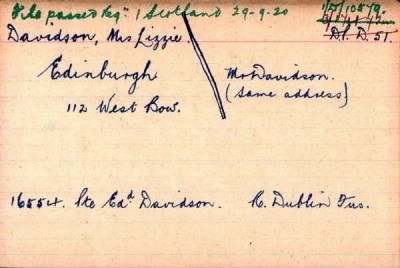 File passed Reg. / Scotland 29-9-20
1/D/10579.
Davidson, Mrs Lizzie.
D1. D. 51.
Edinburgh
112 West Bow.
Mr Davidson.
(same address)
16554. Pte Edd Davidson. R. Dublin Fus.